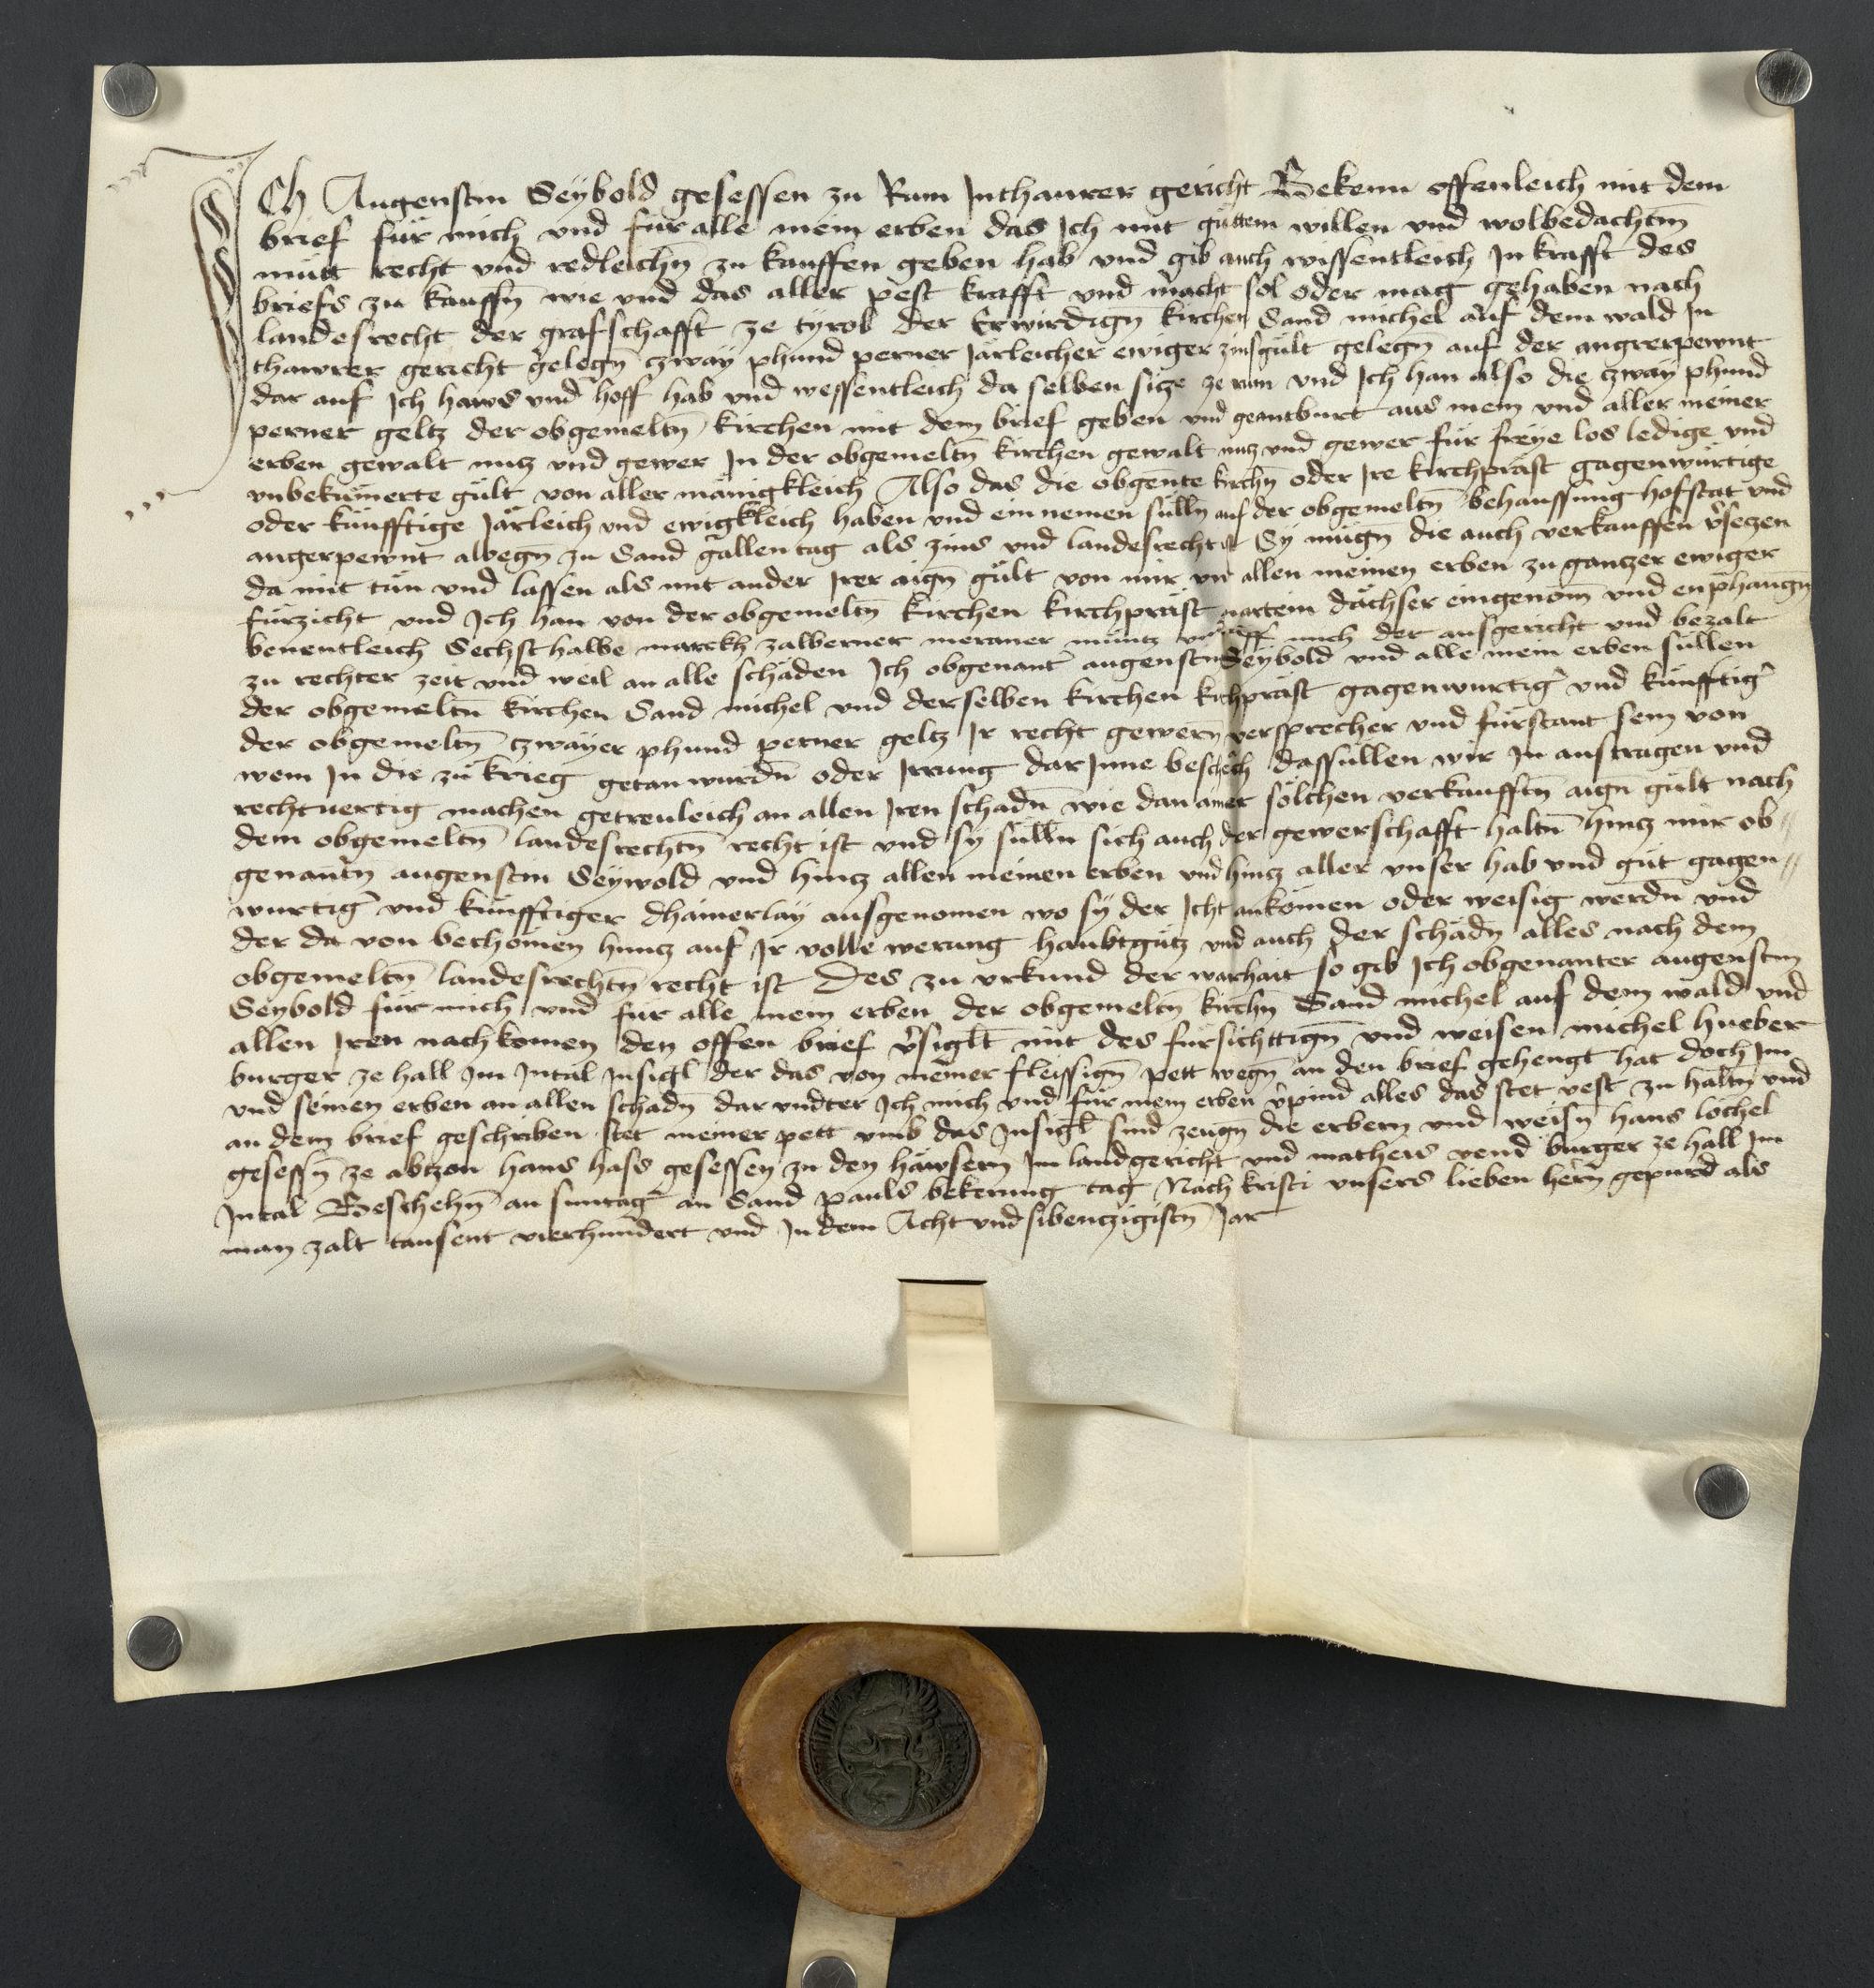 Ich Augenstin Seybold gesessen zu Rum Inthaurer gericht Bekenn offenleich mit dem
brief für mich vnd für alle mein erben das Ich mit güttem willen vnd wolbedachtm̄
mütt recht vnd redleichn̄ zu kauffen geben hab vnd gib auch wissentleich In krafft des
briefs zu kauffn̄ wie vnd das aller pest krafft vnd macht sol oder mag gehaben nach
landesrecht der grafschafft ze tyrol der Erwirdign̄ kirchen Sand michel auf dem wald In
thawrer gericht gelegn̄ czway phund perner Järleicher ewiger zinsgült gelegn̄ auf der angrerpewnt
dar auf Ich haws vnd hoff hab vnd wessentleich da selben sitze ze rum vnd Ich han also die czway phund
perner geltz der obgemeltn̄ kirchen mit dem brief geben vnd geantburt aus mein vnd aller meiner
erben gewalt nutz vnd gewer In der obgemeltn̄ kirchen gewalt nutz vnd gewer für freye los ledige vnd
vnbekumerte gült von aller mänigkleich Also das die obgen̄te kirchn̄ oder Ire kirchpräst gagenwürtige
oder künfftige Järleich vnd ewigkleich haben vnd ein nemen sülln̄ auf der obgemeltn̄ behaussung hofstat vnd
angerpewnt albegn̄ zu Sand gallen tag als zins vnd landesrecht ist Sy mügn̄ die auch verkauffen v̄setzen
da mit tün vnd lassen als mit ander Irer aign̄ gült von mir vn̄ allen meinen erben zu gantzer ewiger
fürzicht vnd Ich han von der obgemeltn̄ kirchen kirchpräst martein dächser eingenom̄ vnd enphangn̄
benentleich Sechsthalbe marckh zalberner meraner müntz mich der ausgericht vnd bezalt
zu rechter zeit vnd weil an alle schäden Ich obgenantˀ augenstin Seybold vnd alle mein erben süllen
der obgemeltn̄ kirchen Sand michel vnd derselben kirchen kirchpräst gagenwurtigˀ vnd künfftigˀ
der obgemeltn̄ czwayer phund perner geltz Ir recht gewern̄ versprecher vnd fürstant sein von
wem In die zu krieg getan wurdn̄ oder Irrung dar Inne beschech das süllen wir In austragen vnd
rechtuertig machen getreuleich an allen Iren schadn̄ wie dan ainer sölchen verkaufftn̄ aign̄ gült nach
dem obgemeltn̄ landesrechtn̄ recht ist vnd sy sülln̄ sich auch der gewerschafft haltn̄ hintz mir ob⸗
genan̄tn̄ augenstin Seywold vnd hintz allen meinen erben vnd hintz aller vnser hab vnd güt gagen⸗
wurtigˀ vnd künfftiger dhainerlay ausgenomen wo sy der Icht ankömen oder weisig werdn̄ vnd
der da von bechömen huntz auf Ir volle werung haubtgütz vnd auch der schädn̄ alles nach dem
obgemeltn̄ landesrechtn̄ recht ist Des zu vrkund der warhait so gib Ich obgenanter augenstin
Seybold für mich vnd für alle mein erben der obgemeltn̄ kirchn̄ Sand michel auf dem wald vnd
allen Iren nachkomen den offen brief v̄siglt mit des fürsichttign̄ vnd weisen michel hueber
burger ze hall Im Intal Insigl der das von meiner fleissign̄ pett wegn̄ an den brief gehengt hat doch Im
vnd seinen erben an allen schadn̄ dar vndter Ich mich vnd für mein erben v̄pind alles das stet vest zu haltn̄ vnd
an dem brief geschriben stet meiner pett vmb das Insigl sind zeugn̄ die erbern vnd weisn̄ hans löchel
gesessn̄ ze abtzon hans hass gesessen zu den häwsern Im landgericht vnd matheis vend burger ze hall Im
Intal Geschehn̄ an suntag an Sand pauls bekerung tag Nach kristi vnsers lieben hern̄ gepurd als
man zalt tausent vierhundert vnd In dem Acht vnd sibenczigistn̄ Jar